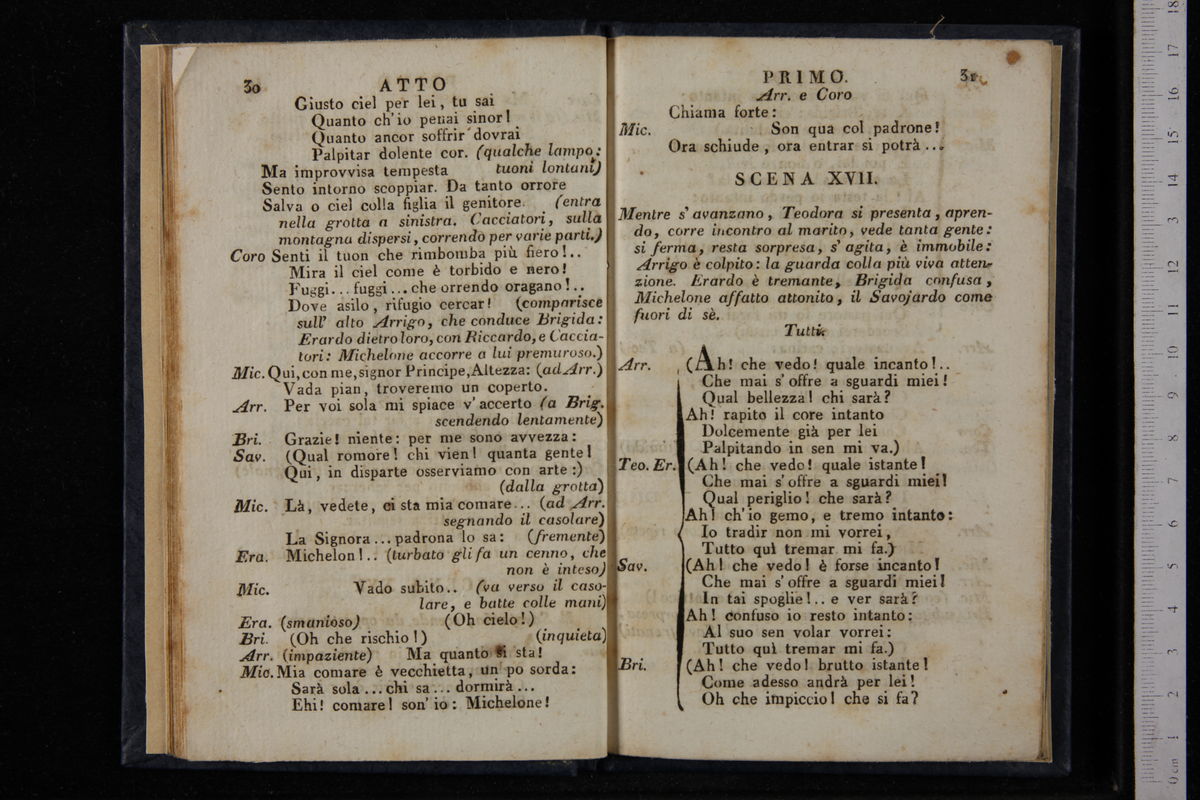 30 ATTO
Giusto ciel per lei, tu sai
Quanto ch'io penai sinor!
Quanto ancor soffrir dovrai
Palpitar dolente cor. (qualche lampo:
Ma improvvisa tempesta tuoni lontani)
Sento intorno scoppiar. Da tanto orrore
Salva o ciel colla figlia il genitore. (entra
nella grotta a sinistra. Cacciatori, sulla
montagna dispersi, correndo per varie parti.)
Coro Senti il tuon che rimbomba più fiero!..
Mira il ciel come è torbido e nero!
Fuggi... fuggi... che orrendo oragano!..
Dove asilo, rifugio cercar! (comparisce
sull' alto Arrigo, che conduce Brigida:
Erardo dietro loro, con Riccardo, e Caccia-
tori: Michelone accorre a lui premuroso.)
Mic. Qui, con me, signor Principe, Altezza: (ad Arr.)
Vada pian, troveremo un coperto.
Arr. Per voi sola mi spiace v'accerto (a Brig.
scendendo lentamente)
Bri. Grazie! niente: per me sono avvezza:
Sav. (Qual romore! chi vien! quanta gente!
Qui, in disparte osserviamo con arte:)
(dalla grotta)
Mic. Là, vedete, ci sta mia comare... (ad Arr.
segnando il casolare)
La Signora... padrona lo sa: (fremente)
Era. Michelon!.. (turbato gli fa un cenno, che
non è inteso)
Mic. Vado subito.. (va verso il caso-
lare, e batte colle mani)
Era. (smanioso) (Oh cielo!)
Bri. (Oh che rischio!) (inquieta)
Arr. (impaziente) Ma quanto si sta!
Mic. Mia comare è vecchietta, un po sorda:
Sarà sola... chi sa... dormirà...
Ehi! comare! son' io: Michelone!
PRIMO. 31
Arr. e Coro
Chiama forte:
Mic. Son qua col padrone!
Ora schiude, ora entrar si potrà...
SCENA XVII.
Mentre s'avanzano, Teodora si presenta, apren-
do, corre incontro al marito, vede tanta gente:
si ferma, resta sorpresa, s'agita, è immobile:
Arrigo è colpito: la guarda colla più viva atten-
zione. Erardo è tremante, Brigida confusa,
Michelone affatto attonito, il Savojardo come
fuori di sè.
Tutti.
Arr. (Ah! che vedo! quale incanto!..
Che mai s'offre a sguardi miei!
Qual bellezza! chi sarà?
Ah! rapito il core intanto
Dolcemente già per lei
Palpitando in sen mi va.)
Teo. Er. (Ah! che vedo! quale istante!
Che mai s'offre a sguardi miei!
Qual periglio! che sarà?
Ah! ch'io gemo, e tremo intanto:
Io tradir non mi vorrei,
Tutto quì tremar mi fa.)
Sav. (Ah! che vedo! è forse incanto!
Che mai s'offre a sguardi miei!
In tai spoglie!.. e ver sarà?
Ah! confuso io resto intanto:
Al suo sen volar vorrei:
Tutto quì tremar mi fa.)
Bri. (Ah! che vedo! brutto istante!
Come adesso andrà per lei!
Oh che impiccio! che si fa?
0 cm 1 2 3 4 5 6 7 8 9 10 11 12 13 14 15 16 17 18